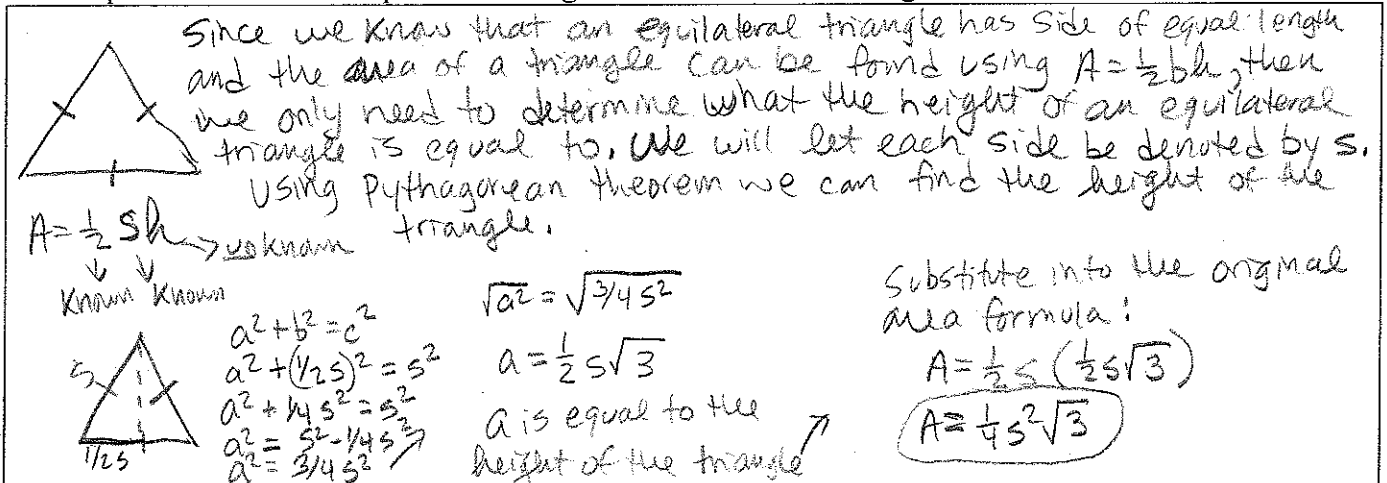 Since we know that an equilateral triangle has side of equal length
and the area of a triangle can be found using A=½bh, then
we only need to determine what the height of an equilateral
triangle is equal to. We will let each side be denoted by s.
Using Pythagorean theorem we can find the height of the
triangle.
A=½sh → unknown
↓ ↓
Known Known
s
1/2s
a²+b²=c²
a²+(1/2s)²=s²
a²+1/4s²=s²
a²=s²-1/4s²
a²=3/4s²
√a²=√3/4s²
a=½s√3
a is equal to the
height of the triangle
Substitute into the original
area formula:
A=½s(½s√3)
A=¼s²√3